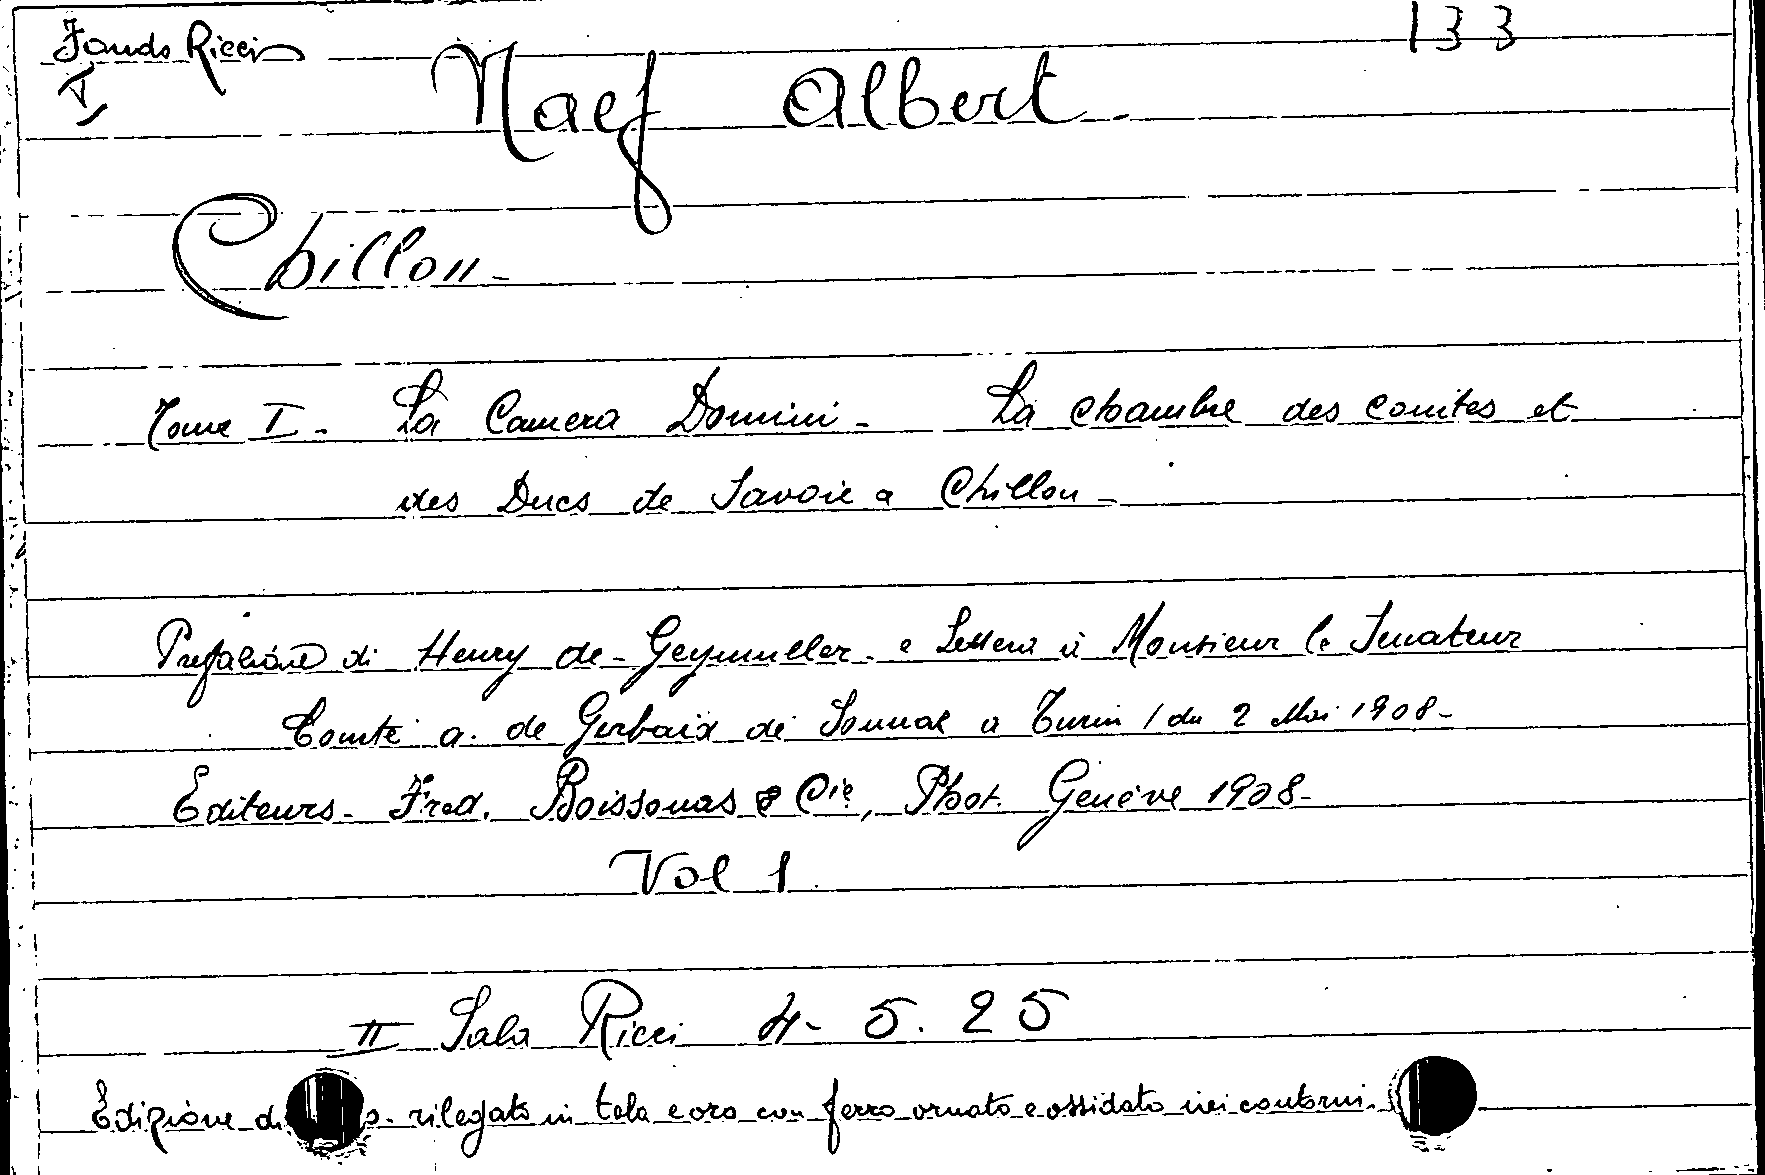 Fondo Ricci 133
I
Naef Albert.
Chillon-
Tome I- La Camera Domini- La chambre des comtes et
des Ducs de Savoie a Chillon-
Prefazione di Henry de-Geymuller- e Lettera à Monsieur le Senateur
Comte a. de Gerbaix de Sonnaz a Turin / du 2 Mai 1908-
Editeurs- Fred. Boissonas & Cie, Phot. Genève 1908-
Vol 1
II Sala Ricci 4- 5. 25
Edizione di rilegato in tela e oro con ferro ornato e ossidato nei contorni.